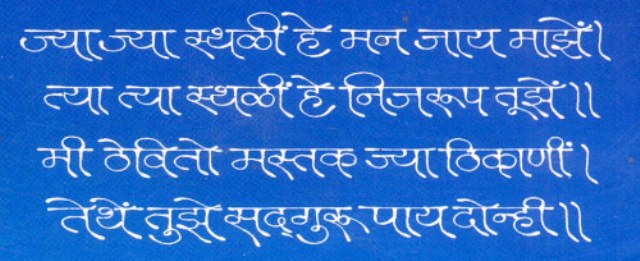 ज्या ज्या स्थळीं हे मन जाय माझें।
त्या त्या स्थळीं हे निजरूप तूझें॥
मी ठेवितो मस्तक ज्या ठिकाणीं।
तेथें तुझे सद्‌गुरू पाय दोन्ही॥